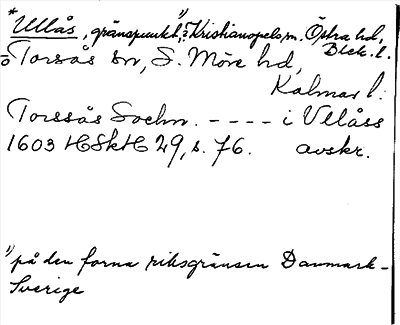 *Ullås, gränspunkt,¹⁾ ? Kristianopels sn. Östra hd, Blek. l.
o Torsås sn, S. Möre hd,
Kalmar l.
Torssås Sochn. - - - - i Vllåss
1603 HSkH 29, s. 76. avskr.
¹⁾ på den forna riksgränsen Danmark-
Sverige